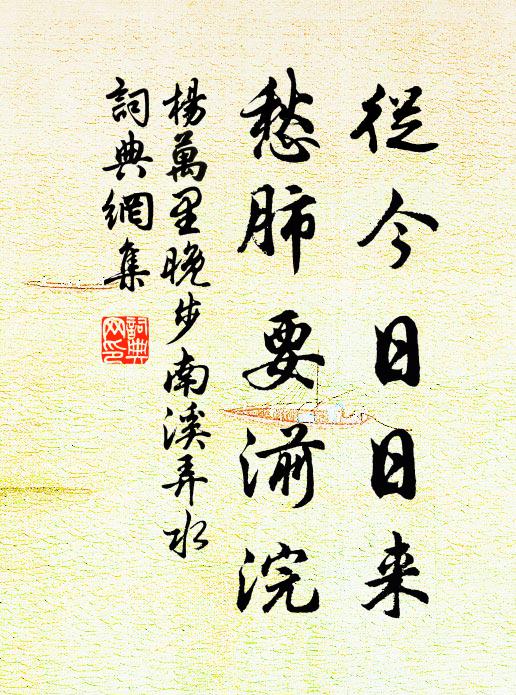 從今日日来
愁肺要湔浣
楊萬里晚步南溪弄水
詞典網集
詞典
网印